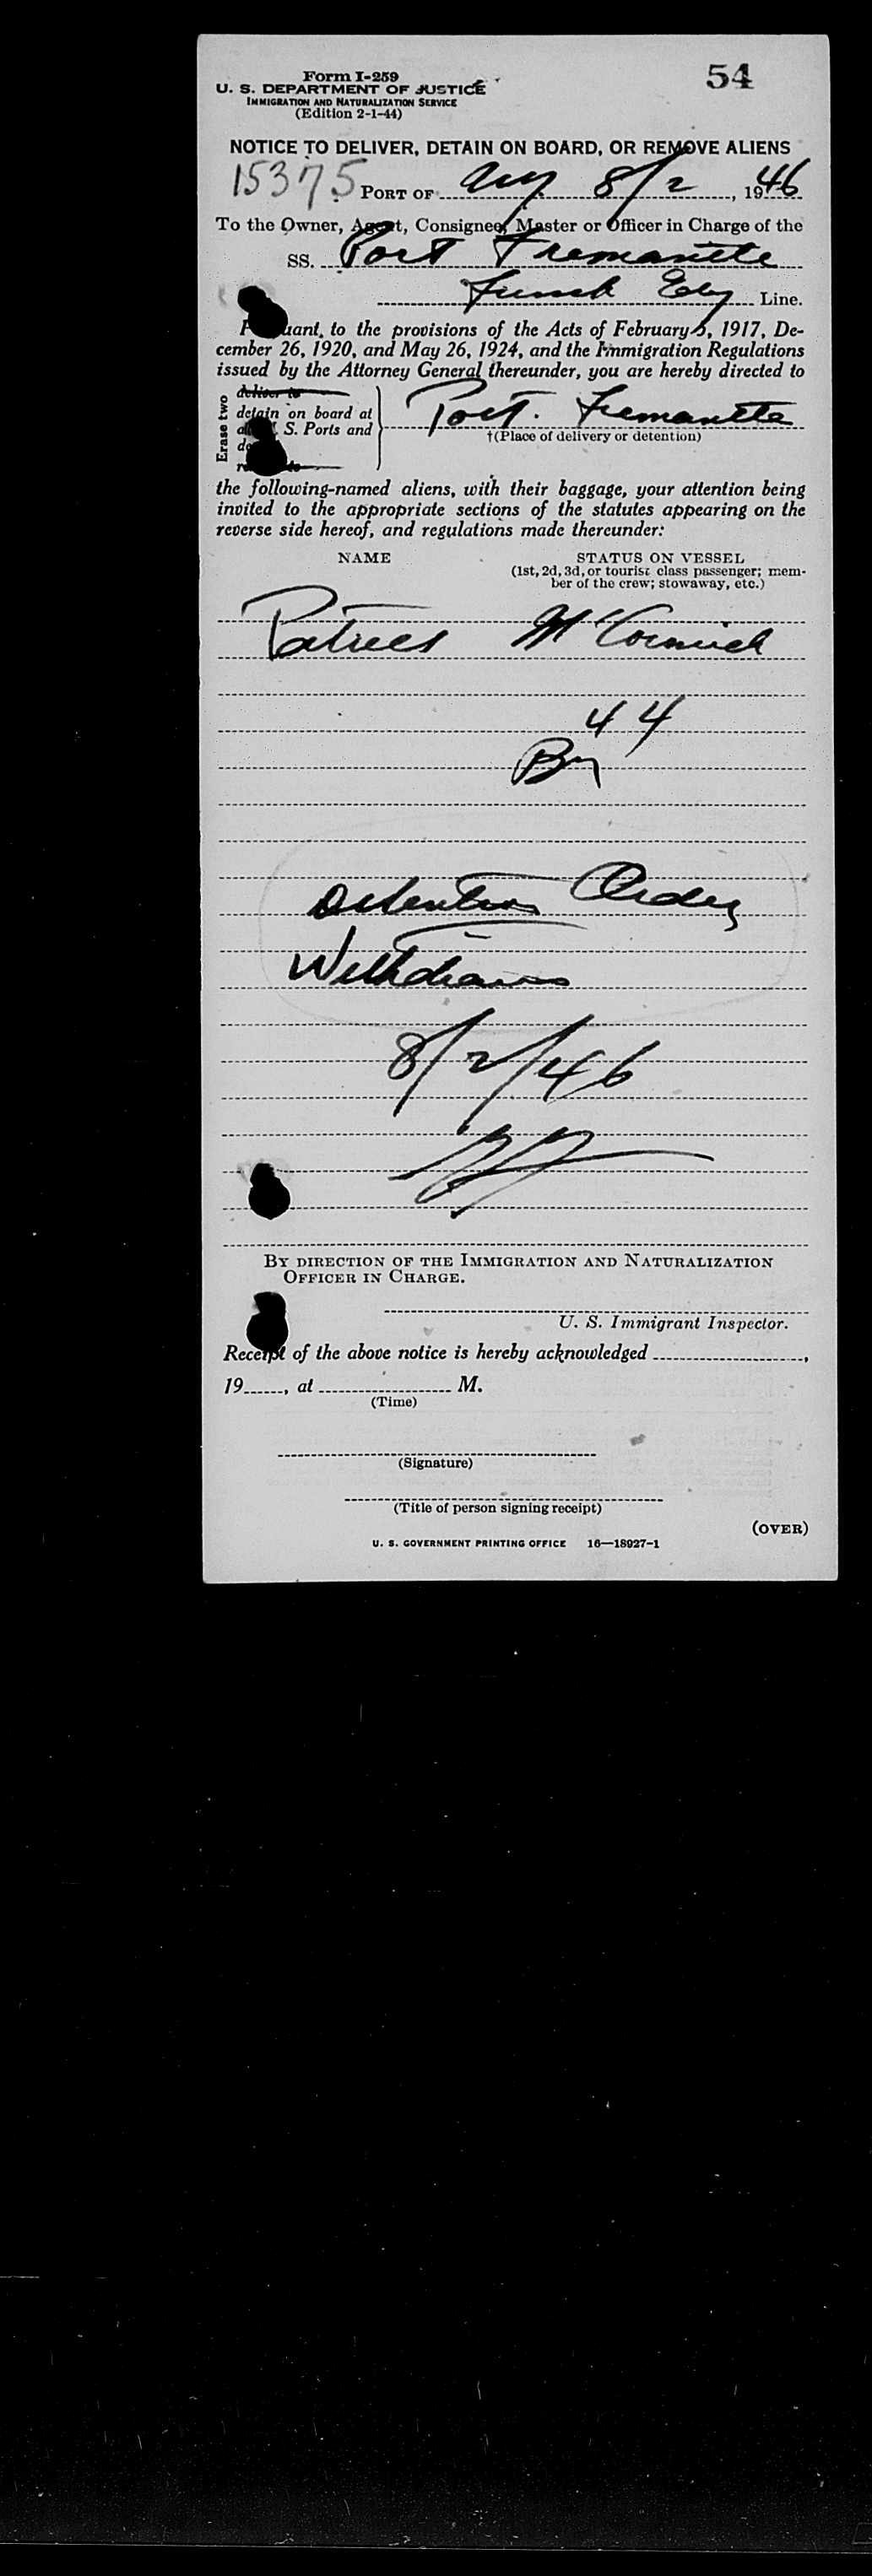 54
Form I-259
U. S. DEPARTMENT OF JUSTICE
IMMIGRATION AND NATURALIZATION SERVICE
(Edition 2-1-44)
NOTICE TO DELIVER, DETAIN ON BOARD, OR REMOVE ALIENS
15375 PORT OF NY 8/2, 1946
To the Owner, Agent, Consignee, Master or Officer in Charge of the
SS. Port Fremantle
Funch Edy Line.
Pursuant, to the provisions of the Acts of February 5, 1917, De-
cember 26, 1920, and May 26, 1924, and the Immigration Regulations
issued by the Attorney General thereunder, you are hereby directed to
Erase two
deliver to
detain on board at
all U. S. Ports and
remove to
Port Fremantle
†(Place of delivery or detention)
the following-named aliens, with their baggage, your attention being
invited to the appropriate sections of the statutes appearing on the
reverse side hereof, and regulations made thereunder:
NAME STATUS ON VESSEL
(1st, 2d, 3d, or tourist class passenger; mem-
ber of the crew; stowaway, etc.)
Patrick McCormick
44
Br
Detention Order
Withdrawn
8/2/46
BY DIRECTION OF THE IMMIGRATION AND NATURALIZATION
OFFICER IN CHARGE.
U. S. Immigrant Inspector.
Receipt of the above notice is hereby acknowledged ,
19 , at M.
(Time)
(Signature)
(Title of person signing receipt)
(OVER)
U. S. GOVERNMENT PRINTING OFFICE 16—18927-1